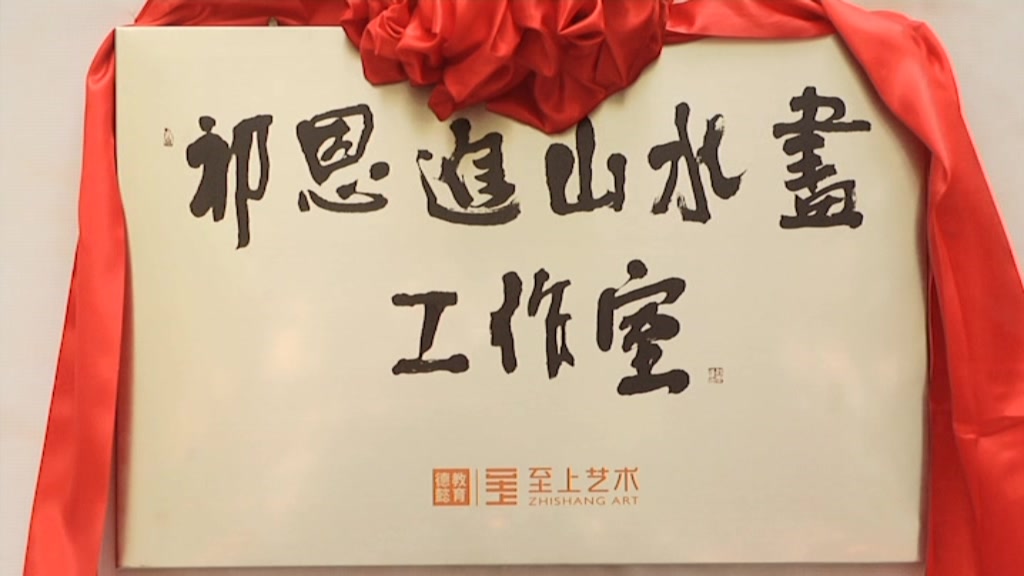 祁恩進山水畫
工作室
德懿教育 至上 至上艺术
ZHISHANG ART